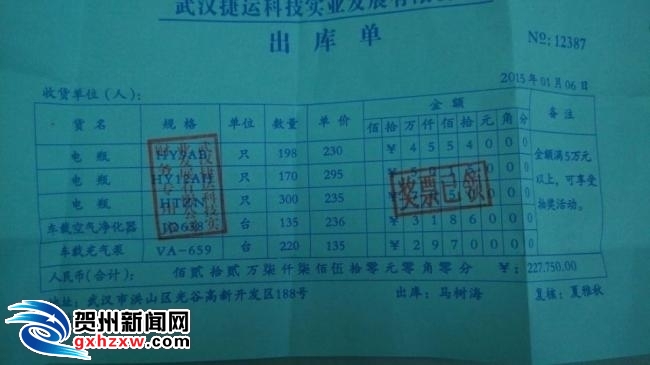 武汉捷运科技实业发展有限公司
出库单
No: 12387
2015年01月06日
收货单位(人):
货名 规格 单位 数量 单价 金额 备注
佰 拾 万 仟 佰 拾 元 角 分
电瓶 HY9AB 只 198 230 ¥ 4 5 5 4 0 0 0
电瓶 HY12AH 只 170 295 ¥
电瓶 HTZN 只 300 235 ¥
车载空气净化器 台 135 236 ¥ 3 1 8 6 0 0 0
车载充气泵 VA-659 台 220 135 ¥ 2 9 7 0 0 0 0
金额满5万元
以上,可享受
抽奖活动。
奖票已领
人民币(合计): 佰贰拾贰万柒仟柒佰伍拾零元零角零分 ¥: 227,750.00
地址: 武汉市洪山区光谷高新开发区188号 出库: 马树海 复核: 夏雅秋
贺州新闻网
www.gxhzxw.com